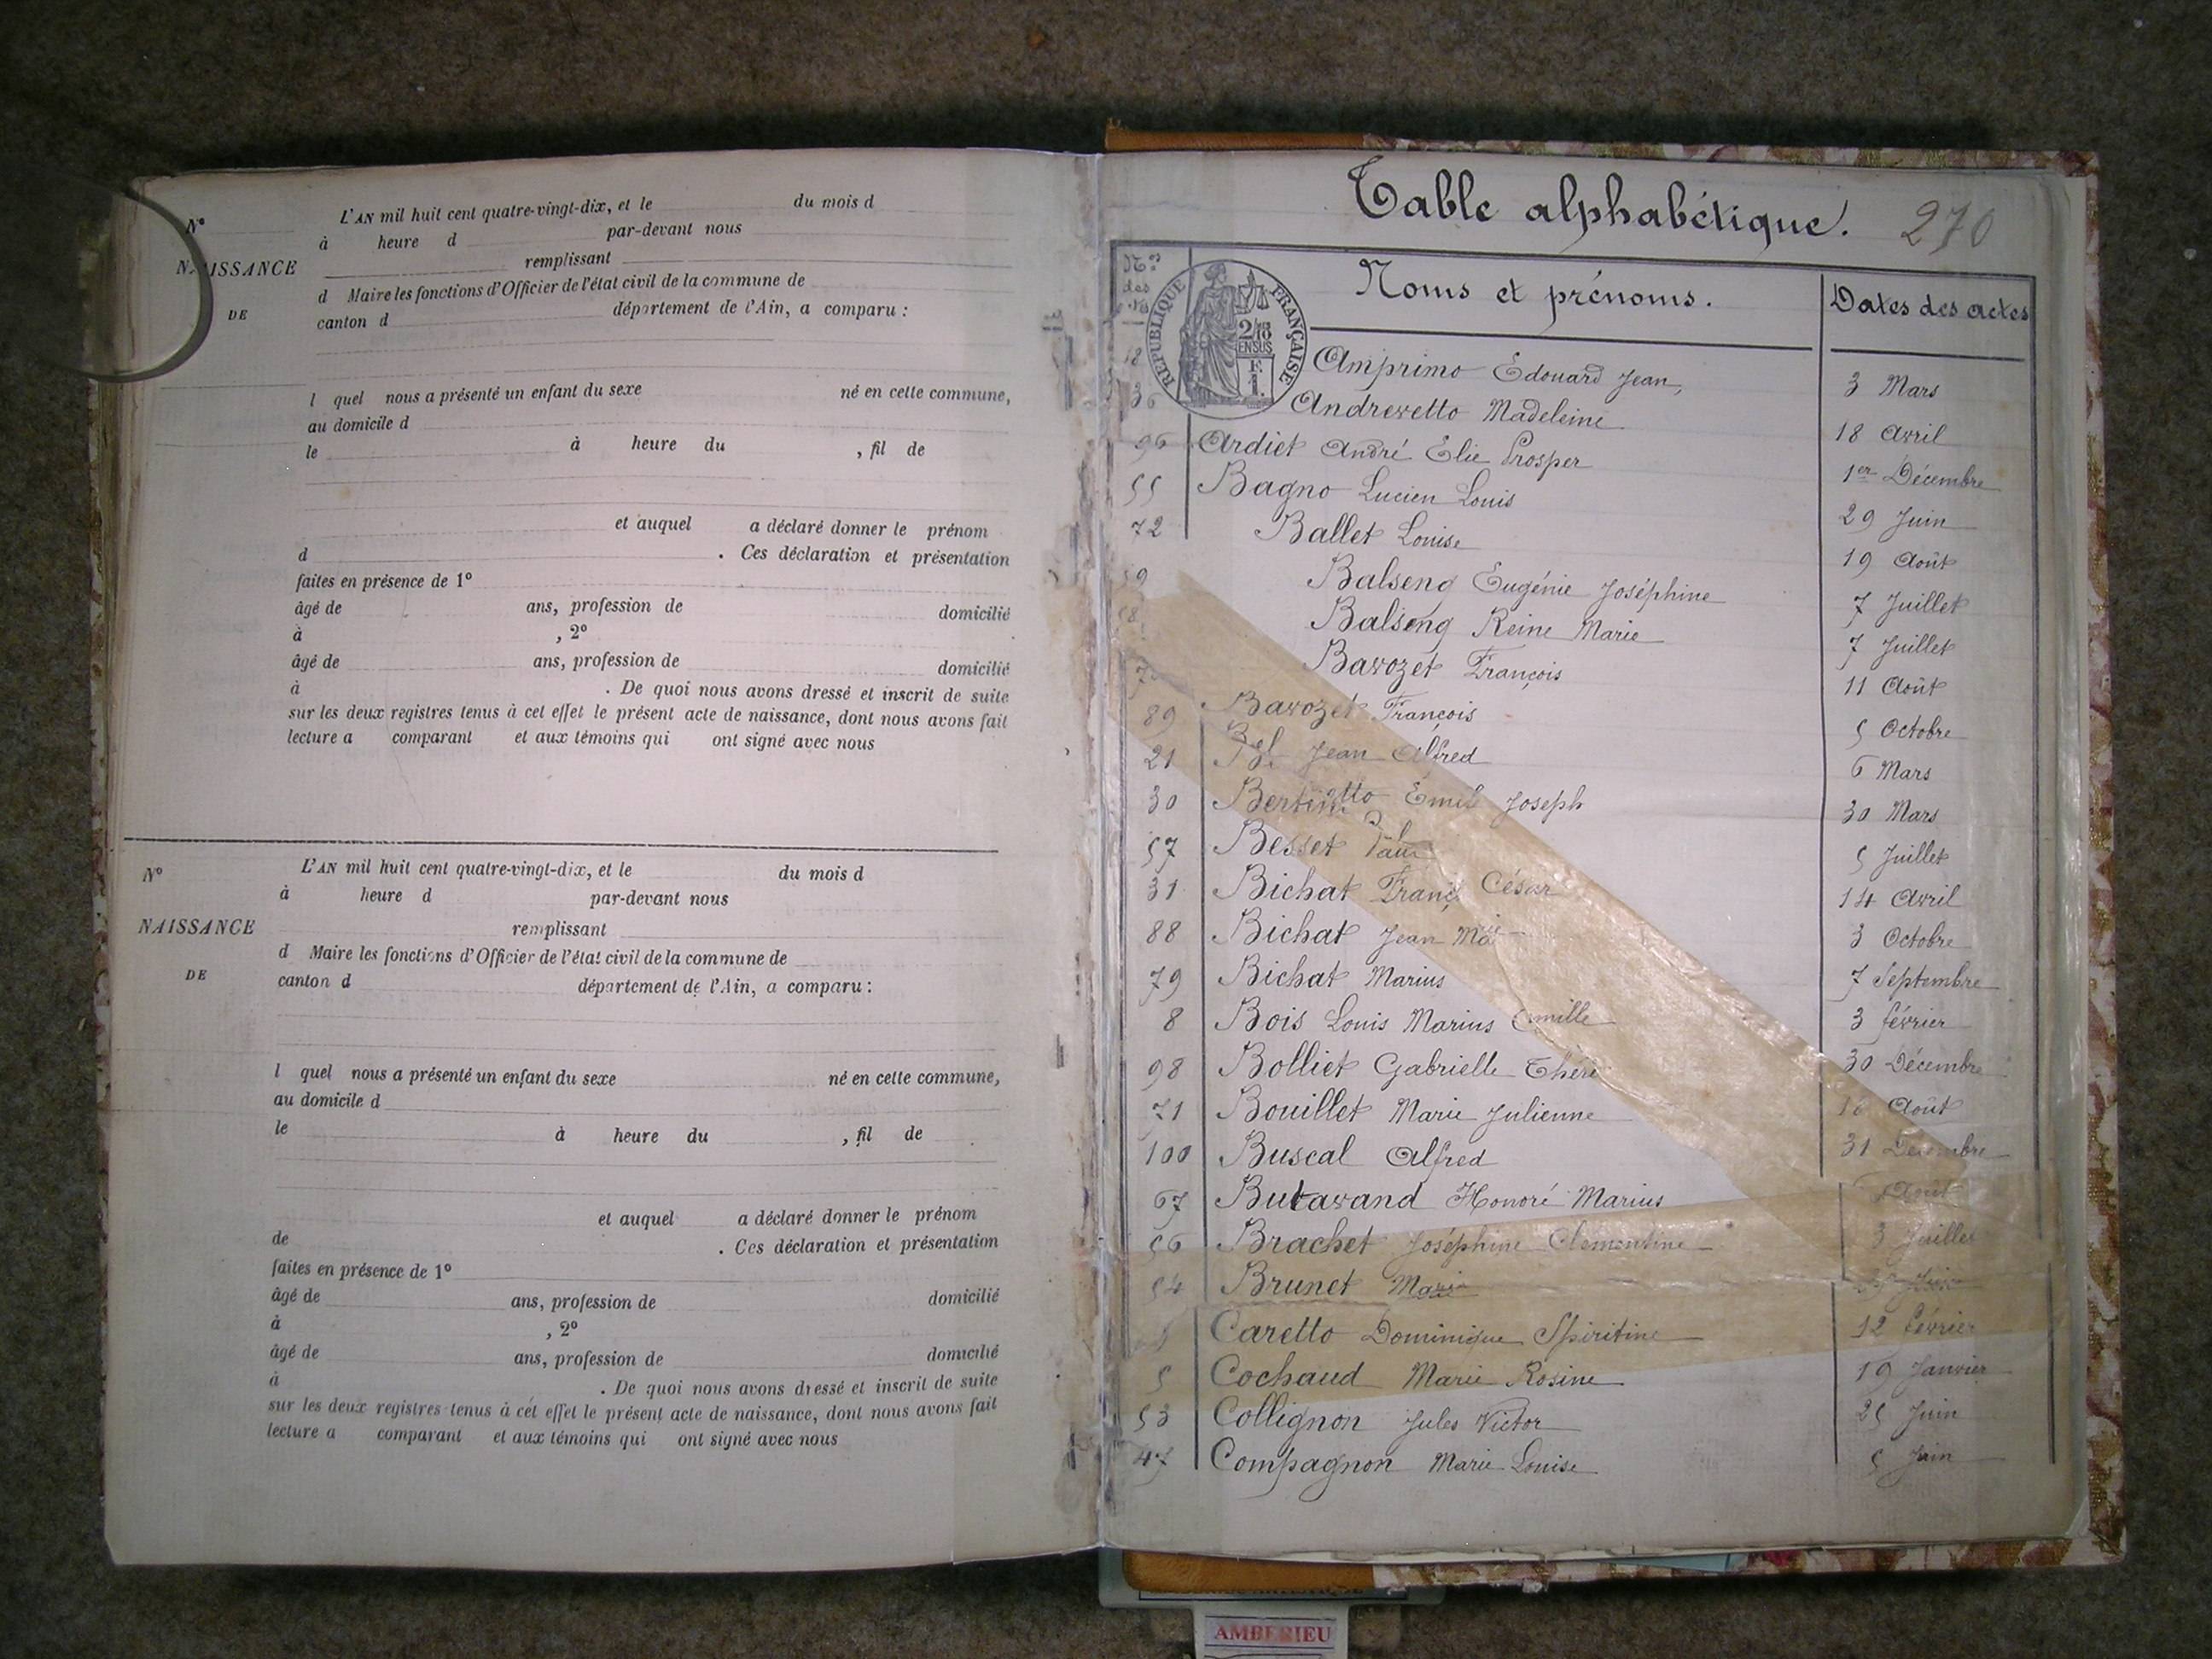 L'AN mil huit cent quatre-vingt-dix, et le du mois d
N° à heure d par-devant nous
NAISSANCE remplissant
d Maire les fonctions d'Officier de l'état civil de la commune de
DE canton d département de l'Ain, a comparu :
l quel nous a présenté un enfant du sexe né en cette commune,
au domicile d
le à heure du , fil de
et auquel a déclaré donner le prénom
d . Ces déclaration et présentation
faites en présence de 1°
âgé de ans, profession de domicilié
à , 2°
âgé de ans, profession de domicilié
à . De quoi nous avons dressé et inscrit de suite
sur les deux registres tenus à cet effet le présent acte de naissance, dont nous avons fait
lecture a comparant et aux témoins qui ont signé avec nous
N° L'AN mil huit cent quatre-vingt-dix, et le du mois d
à heure d par-devant nous
NAISSANCE remplissant
d Maire les fonctions d'Officier de l'état civil de la commune de
DE canton d département de l'Ain, a comparu :
l quel nous a présenté un enfant du sexe né en cette commune,
au domicile d
le à heure du , fil de
et auquel a déclaré donner le prénom
de . Ces déclaration et présentation
faites en présence de 1°
âgé de ans, profession de domicilié
à , 2°
âgé de ans, profession de domicilié
à . De quoi nous avons dressé et inscrit de suite
sur les deux registres tenus à cet effet le présent acte de naissance, dont nous avons fait
lecture a comparant et aux témoins qui ont signé avec nous
Table alphabétique. 270
Nos des Noms et prénoms. Dates des actes
REPUBLIQUE FRANÇAISE
18 Amprimo Edouard Jean, 3 Mars
36 Andrevetto Madeleine 18 Avril
96 Ardiet André Elie Prosper 1er Décembre
55 Bagno Lucien Louis 29 Juin
72 Ballet Louise 19 Août
59 Balseng Eugénie Joséphine 7 Juillet
58 Balseng Reine Marie 7 Juillet
Bavozet François 11 Août
89 Bavozet François 5 Octobre
21 Bel Jean Alfred 6 Mars
30 Bertinotto Emile Joseph 30 Mars
57 Besset Paul 5 Juillet
31 Bichat Franç César 14 Avril
88 Bichat Jean Marie 3 Octobre
79 Bichat Marius 7 Septembre
8 Bois Louis Marius Camille 3 février
98 Bolliet Gabrielle Thérè 30 Décembre
71 Bouillet Marie Julienne 16 Août
100 Buscal Alfred 31 Décembre
67 Butavand Honoré Marius Août
56 Brachet Joséphine Clémentine 3 Juillet
54 Brunet Marie Juin
9 Caretto Dominique Spiritine 12 février
5 Cochaud Marie Rosine 19 Janvier
53 Collignon Jules Victor 25 Juin
47 Compagnon Marie Louise 5 Juin
AMBERIEU